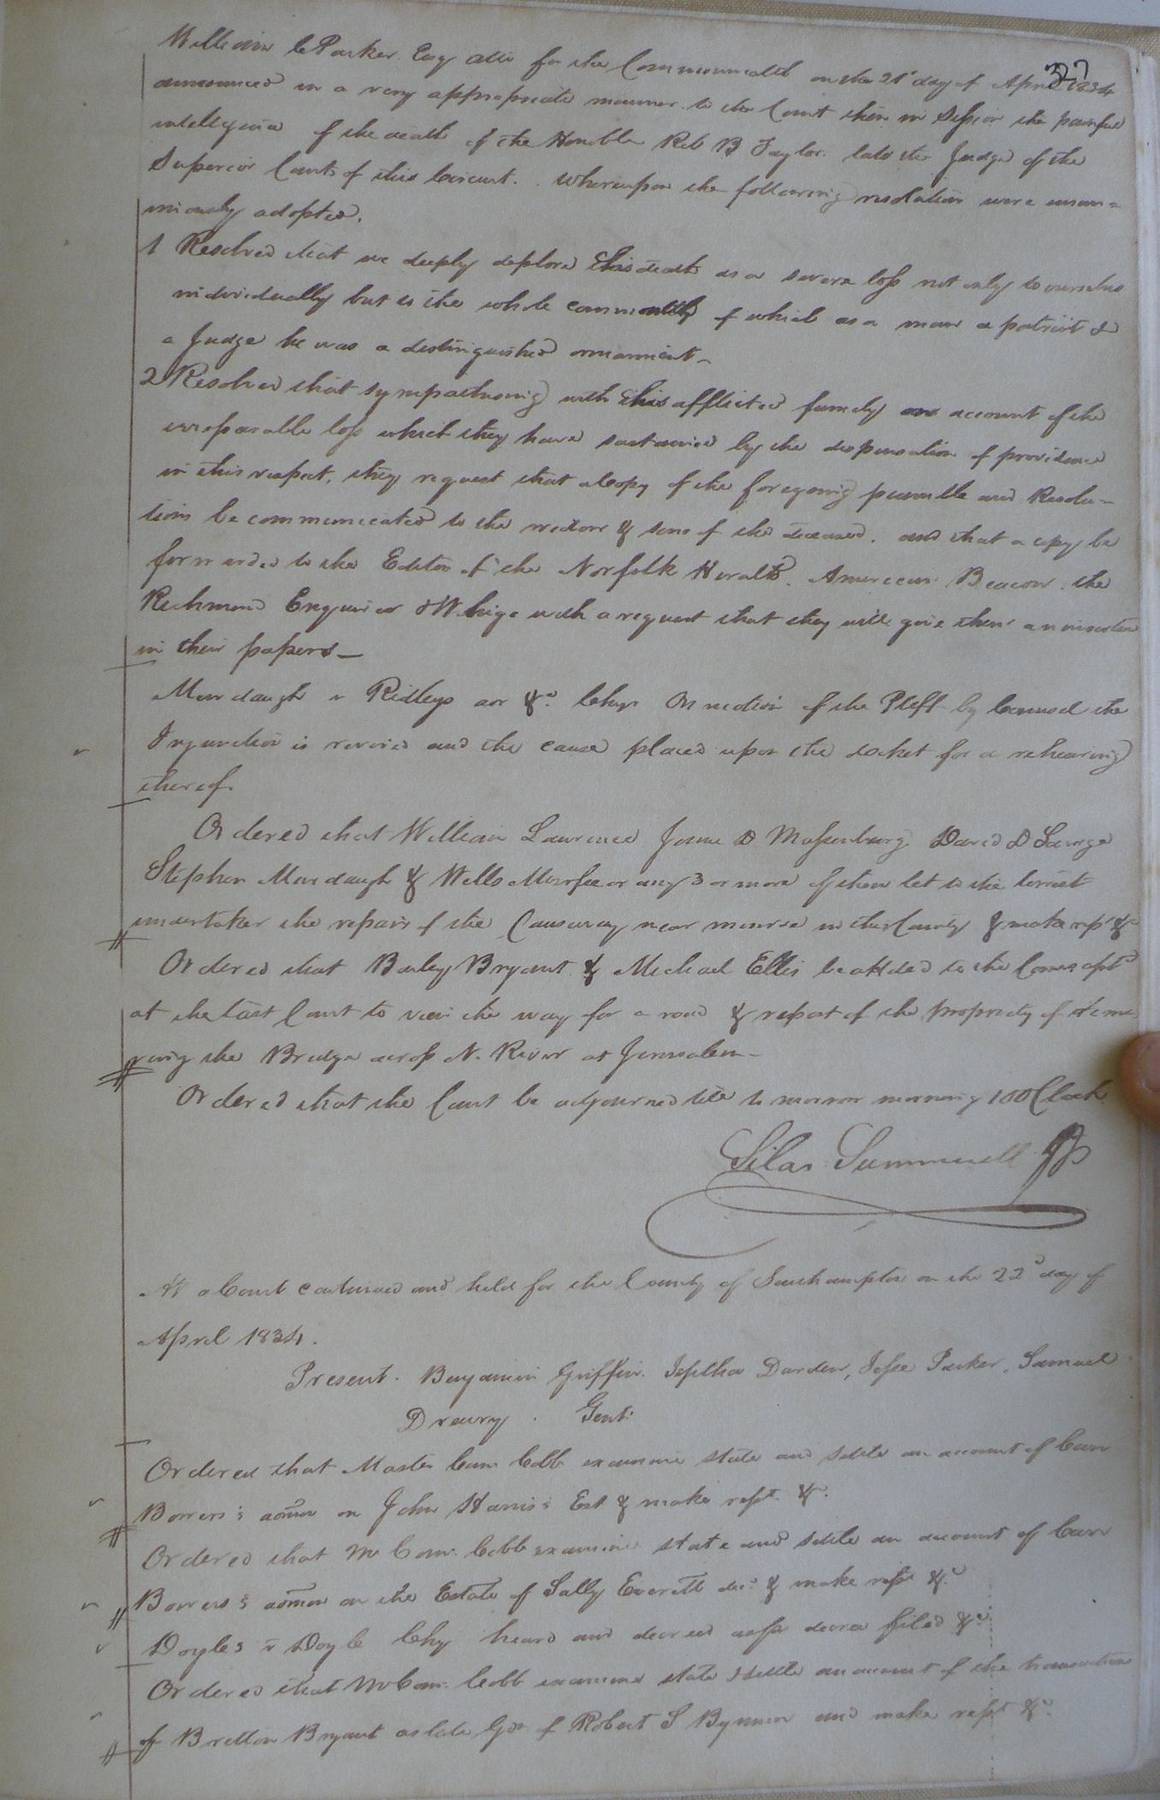 327
William C Parker Esq atto for the Commonwealth on the 21st day of April 1834
announced in a very appropriate manner to the Court then in Session the painful
intelligence of the death of the Honble Rob B Taylor late the Judge of the
Superior Courts of this Circuit. Whereupon the following resolutions were unan=
imously adopted.
1 Resolved that we deeply deplore this death as a severe loss not only to ourselves
individually but to the whole community of which as a man a patriot &
a Judge he was a distinguished ornament –
2 Resolved that sympathising with this afflicted family on account of the
irreparable loss which they have sustained by the dispensation of providence
in this respect, they request that a Copy of the foregoing preamble and Resolu–
tions be communicated to the widow & sons of the deceased. and that a copy be
forwarded to the Editor of the Norfolk Herald. American Beacon the
Richmond Enquirer & Whig with a request that they will give them an insertion
in their papers –
Murdaugh v Ridleys &c. Chy. On motion of the Pltff by Counsel the
Injunction is revived and the cause placed upon the docket for a rehearing
thereof.
Ordered that William Lawrence D Massenburg David D
Stephen Murdaugh & Wells Murfee or any 3 or more of them let to the lowest
undertaker the repairs of the Causeway near in this County & make rept &c
Ordered that Bryant & Michael Ellis be added to the Comrs apptd
at the last Court to view the way for a road & report of the propriety of remo
ving the Bridge across N. River at Jerusalem –
Ordered that the Court be adjourned till to morrow morning 10 OClock.
Silas Summerell JP
At a Court continued and held for the County of Southampton on the 22d day of
April 1834.
Present. Benjamin Griffin. Jeptha Darden, Jesse Parker, Samuel
Drewry. Gent.
Ordered that Master Com Cobb examine state and settle an account of Carr
Bowers's admon on John Harris's Est & make rept &c.
Ordered that M Com. Cobb examine state and settle an account of Carr
Bowers's admon on the Estate of Sally Everett dec. & make rept &c
Doyles v Doyle Chy heard and decreed as pr decree filed &c
Ordered that M Com. Cobb examine state & settle an account of the transactions
of Britton Bryant as late Gdn of Robert S Bynum and make rept &c.